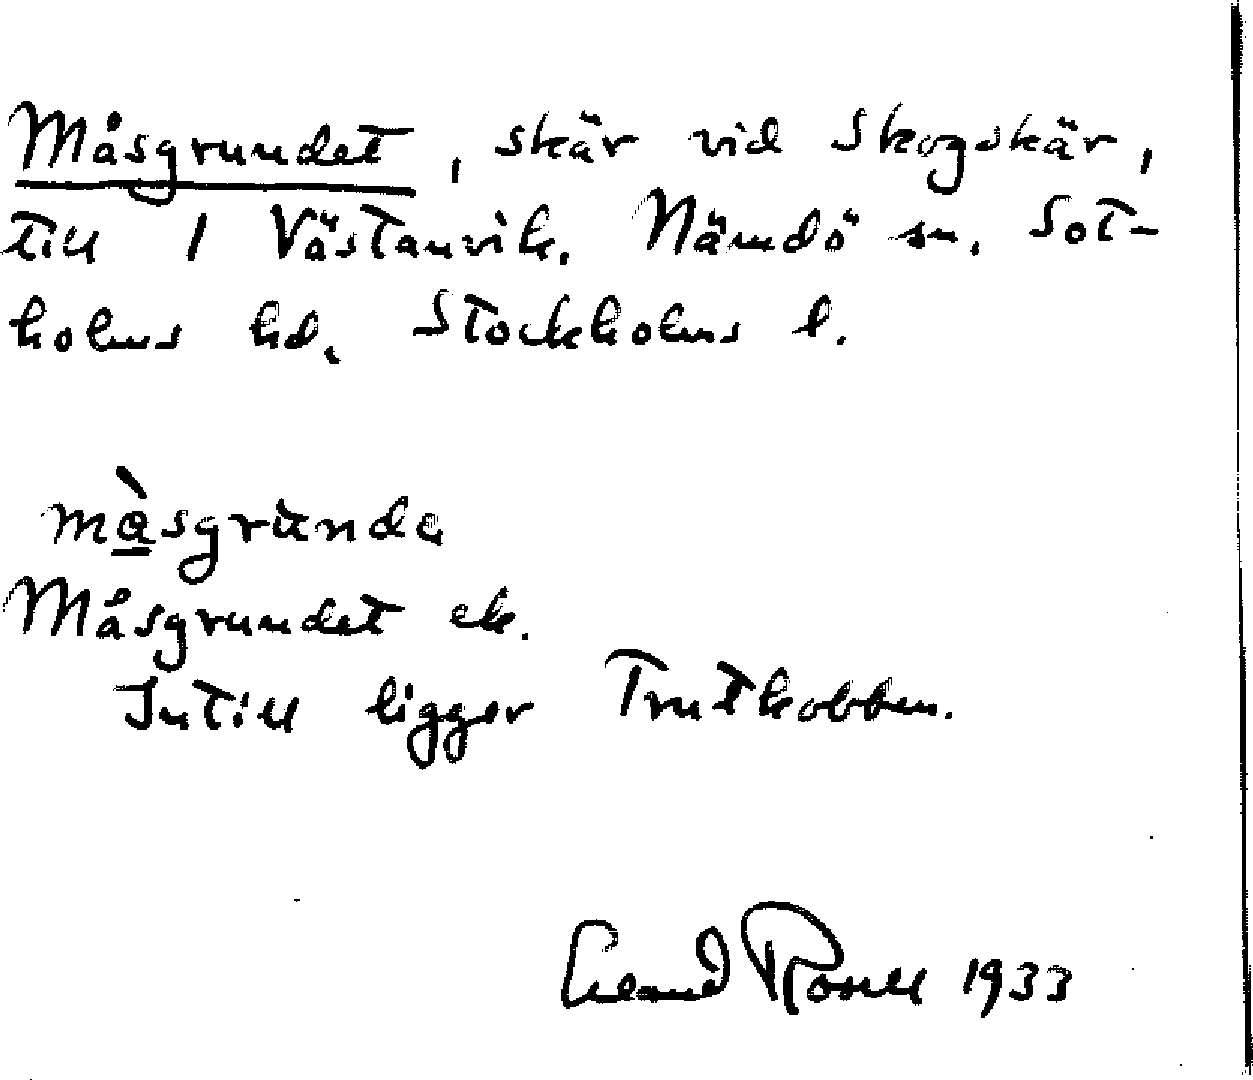 Måsgrundet, skär vid Skogskär,
till 1 Västanvik. Nämdö sn. Sot-
holms hd. Stockholms l.
må̀sgrùnde
Måsgrundet ek.
Intill ligger Trutkobben.
Erland Rosell 1933